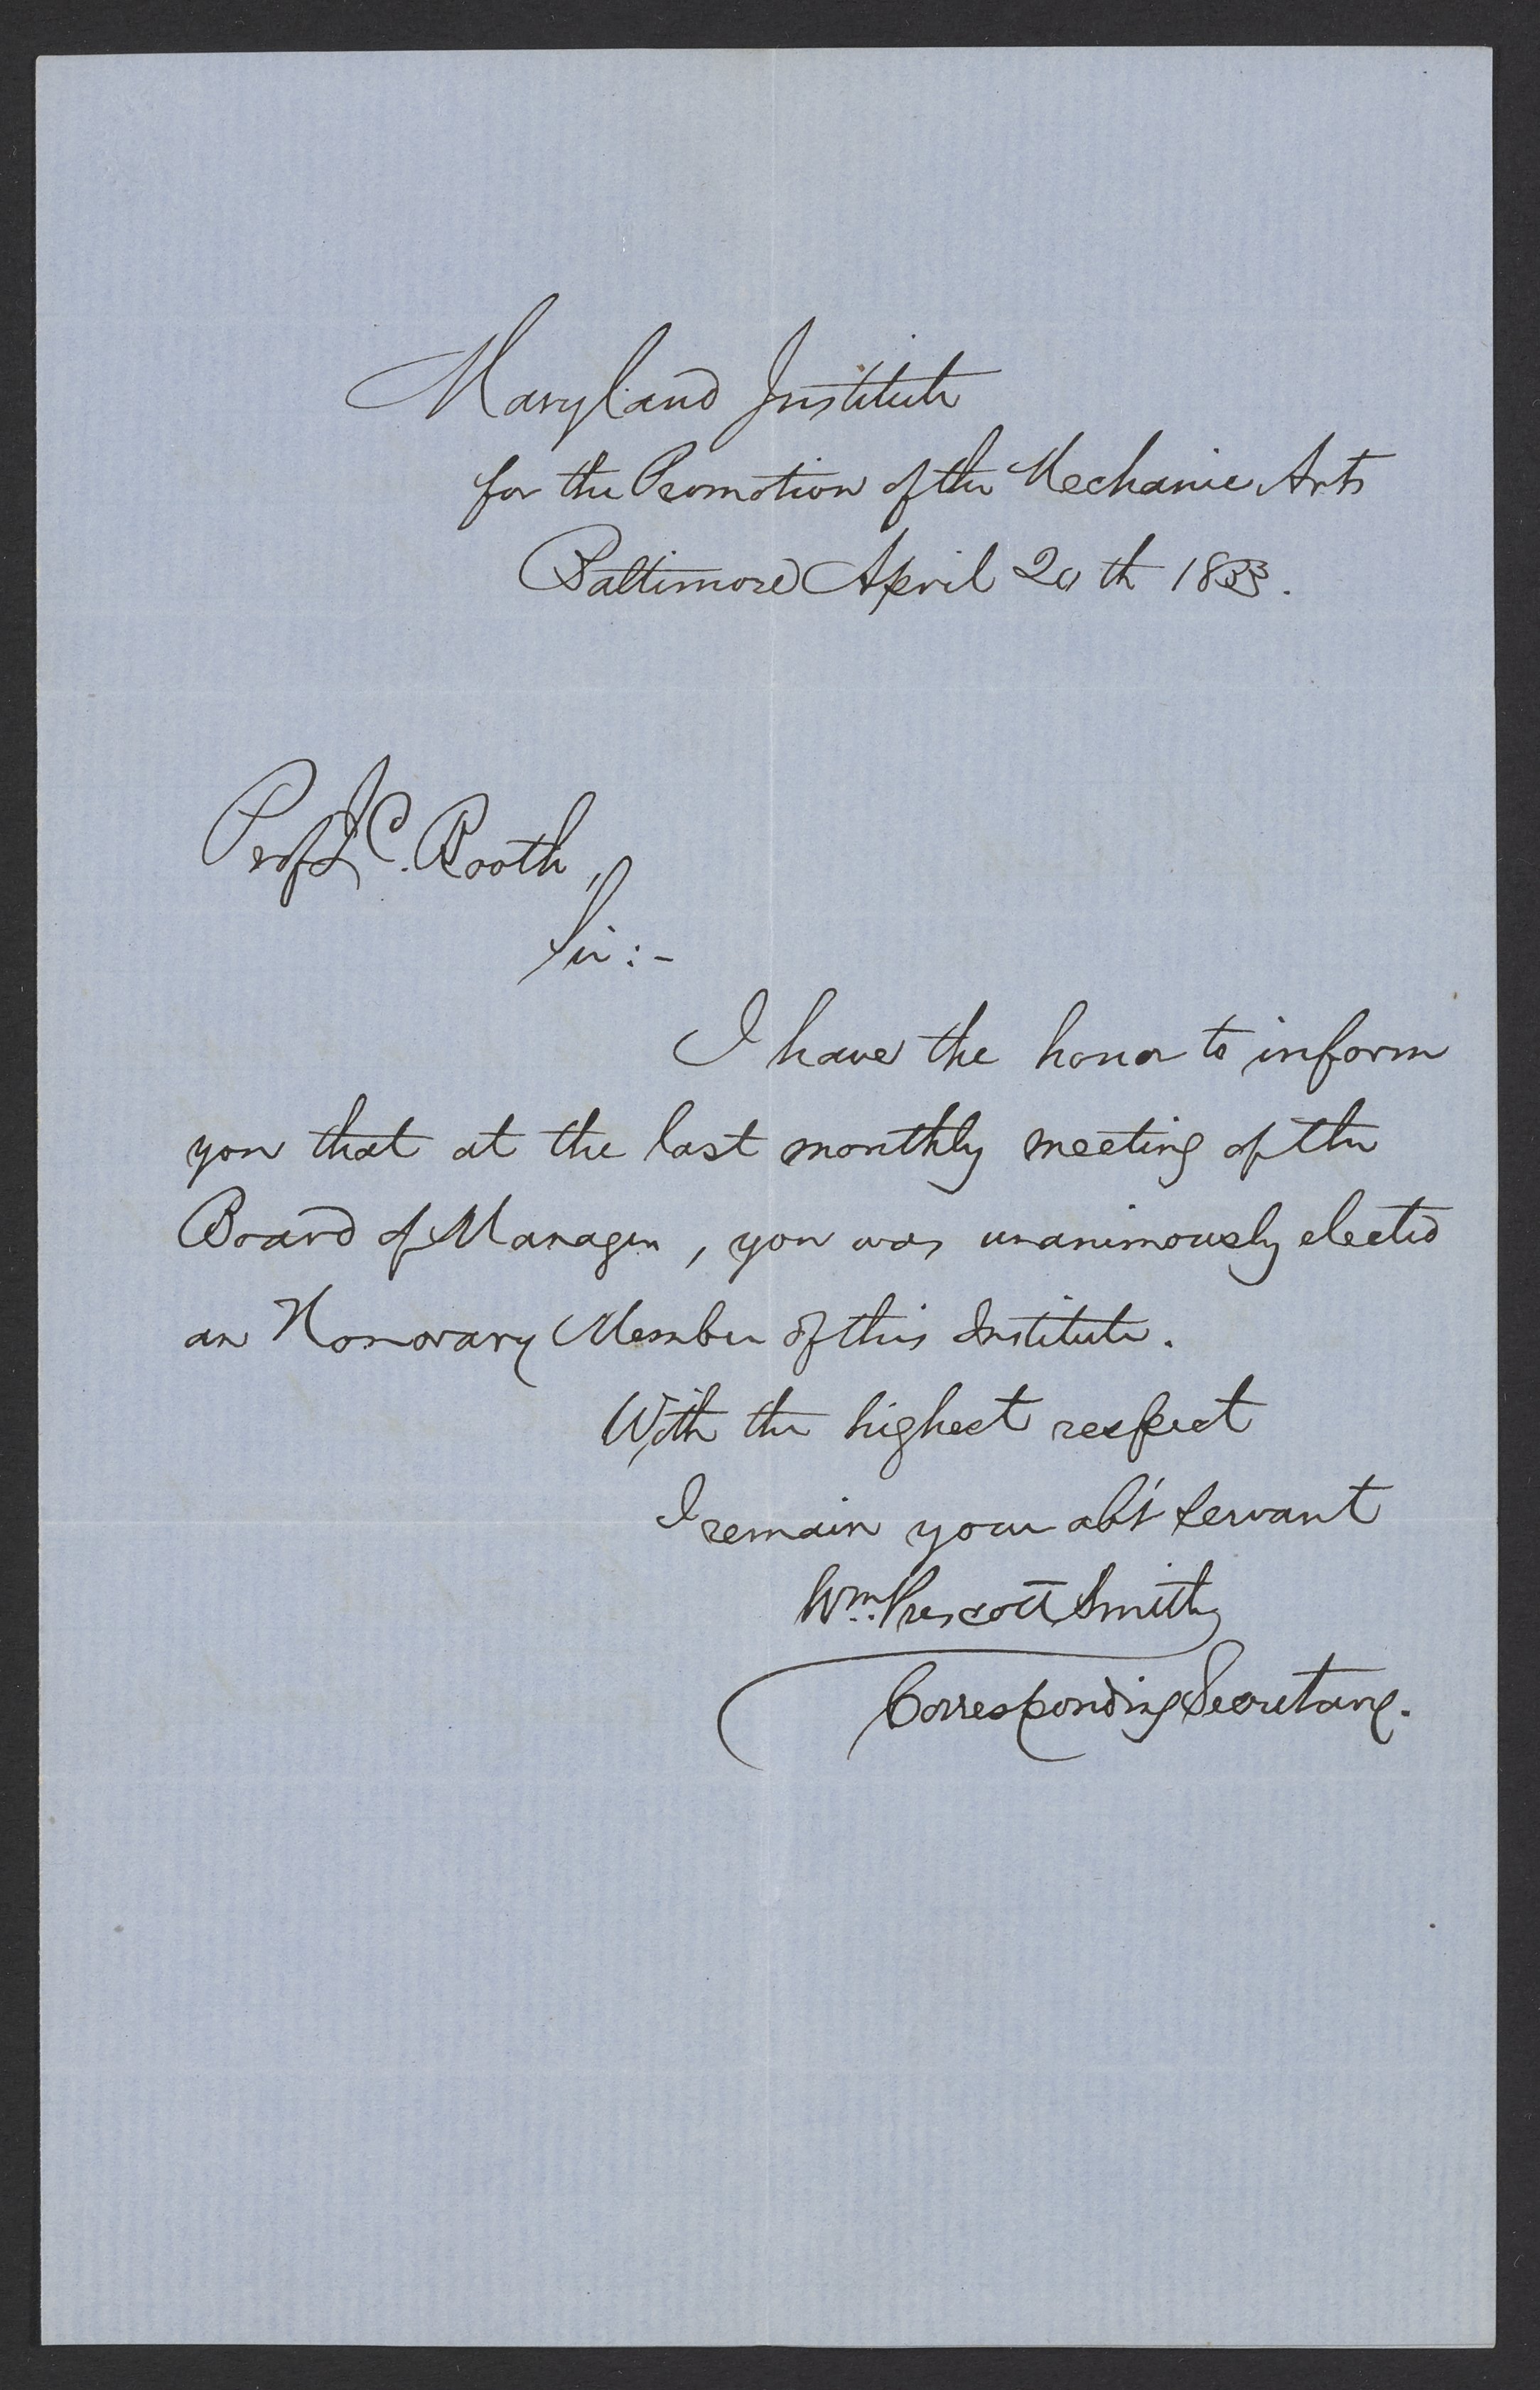 Maryland Institute
for the Promotion of the Mechanic Arts
Baltimore April 20th 1853.
Prof J C. Booth,
Sir:-
I have the honor to inform
you that at the last monthly meeting of the
Board of Managers, you was unanimously elected
an Honorary Member of this Institute.
With the highest respect
I remain your obt servant
Wm. Prescott Smith
Corresponding Secretary.